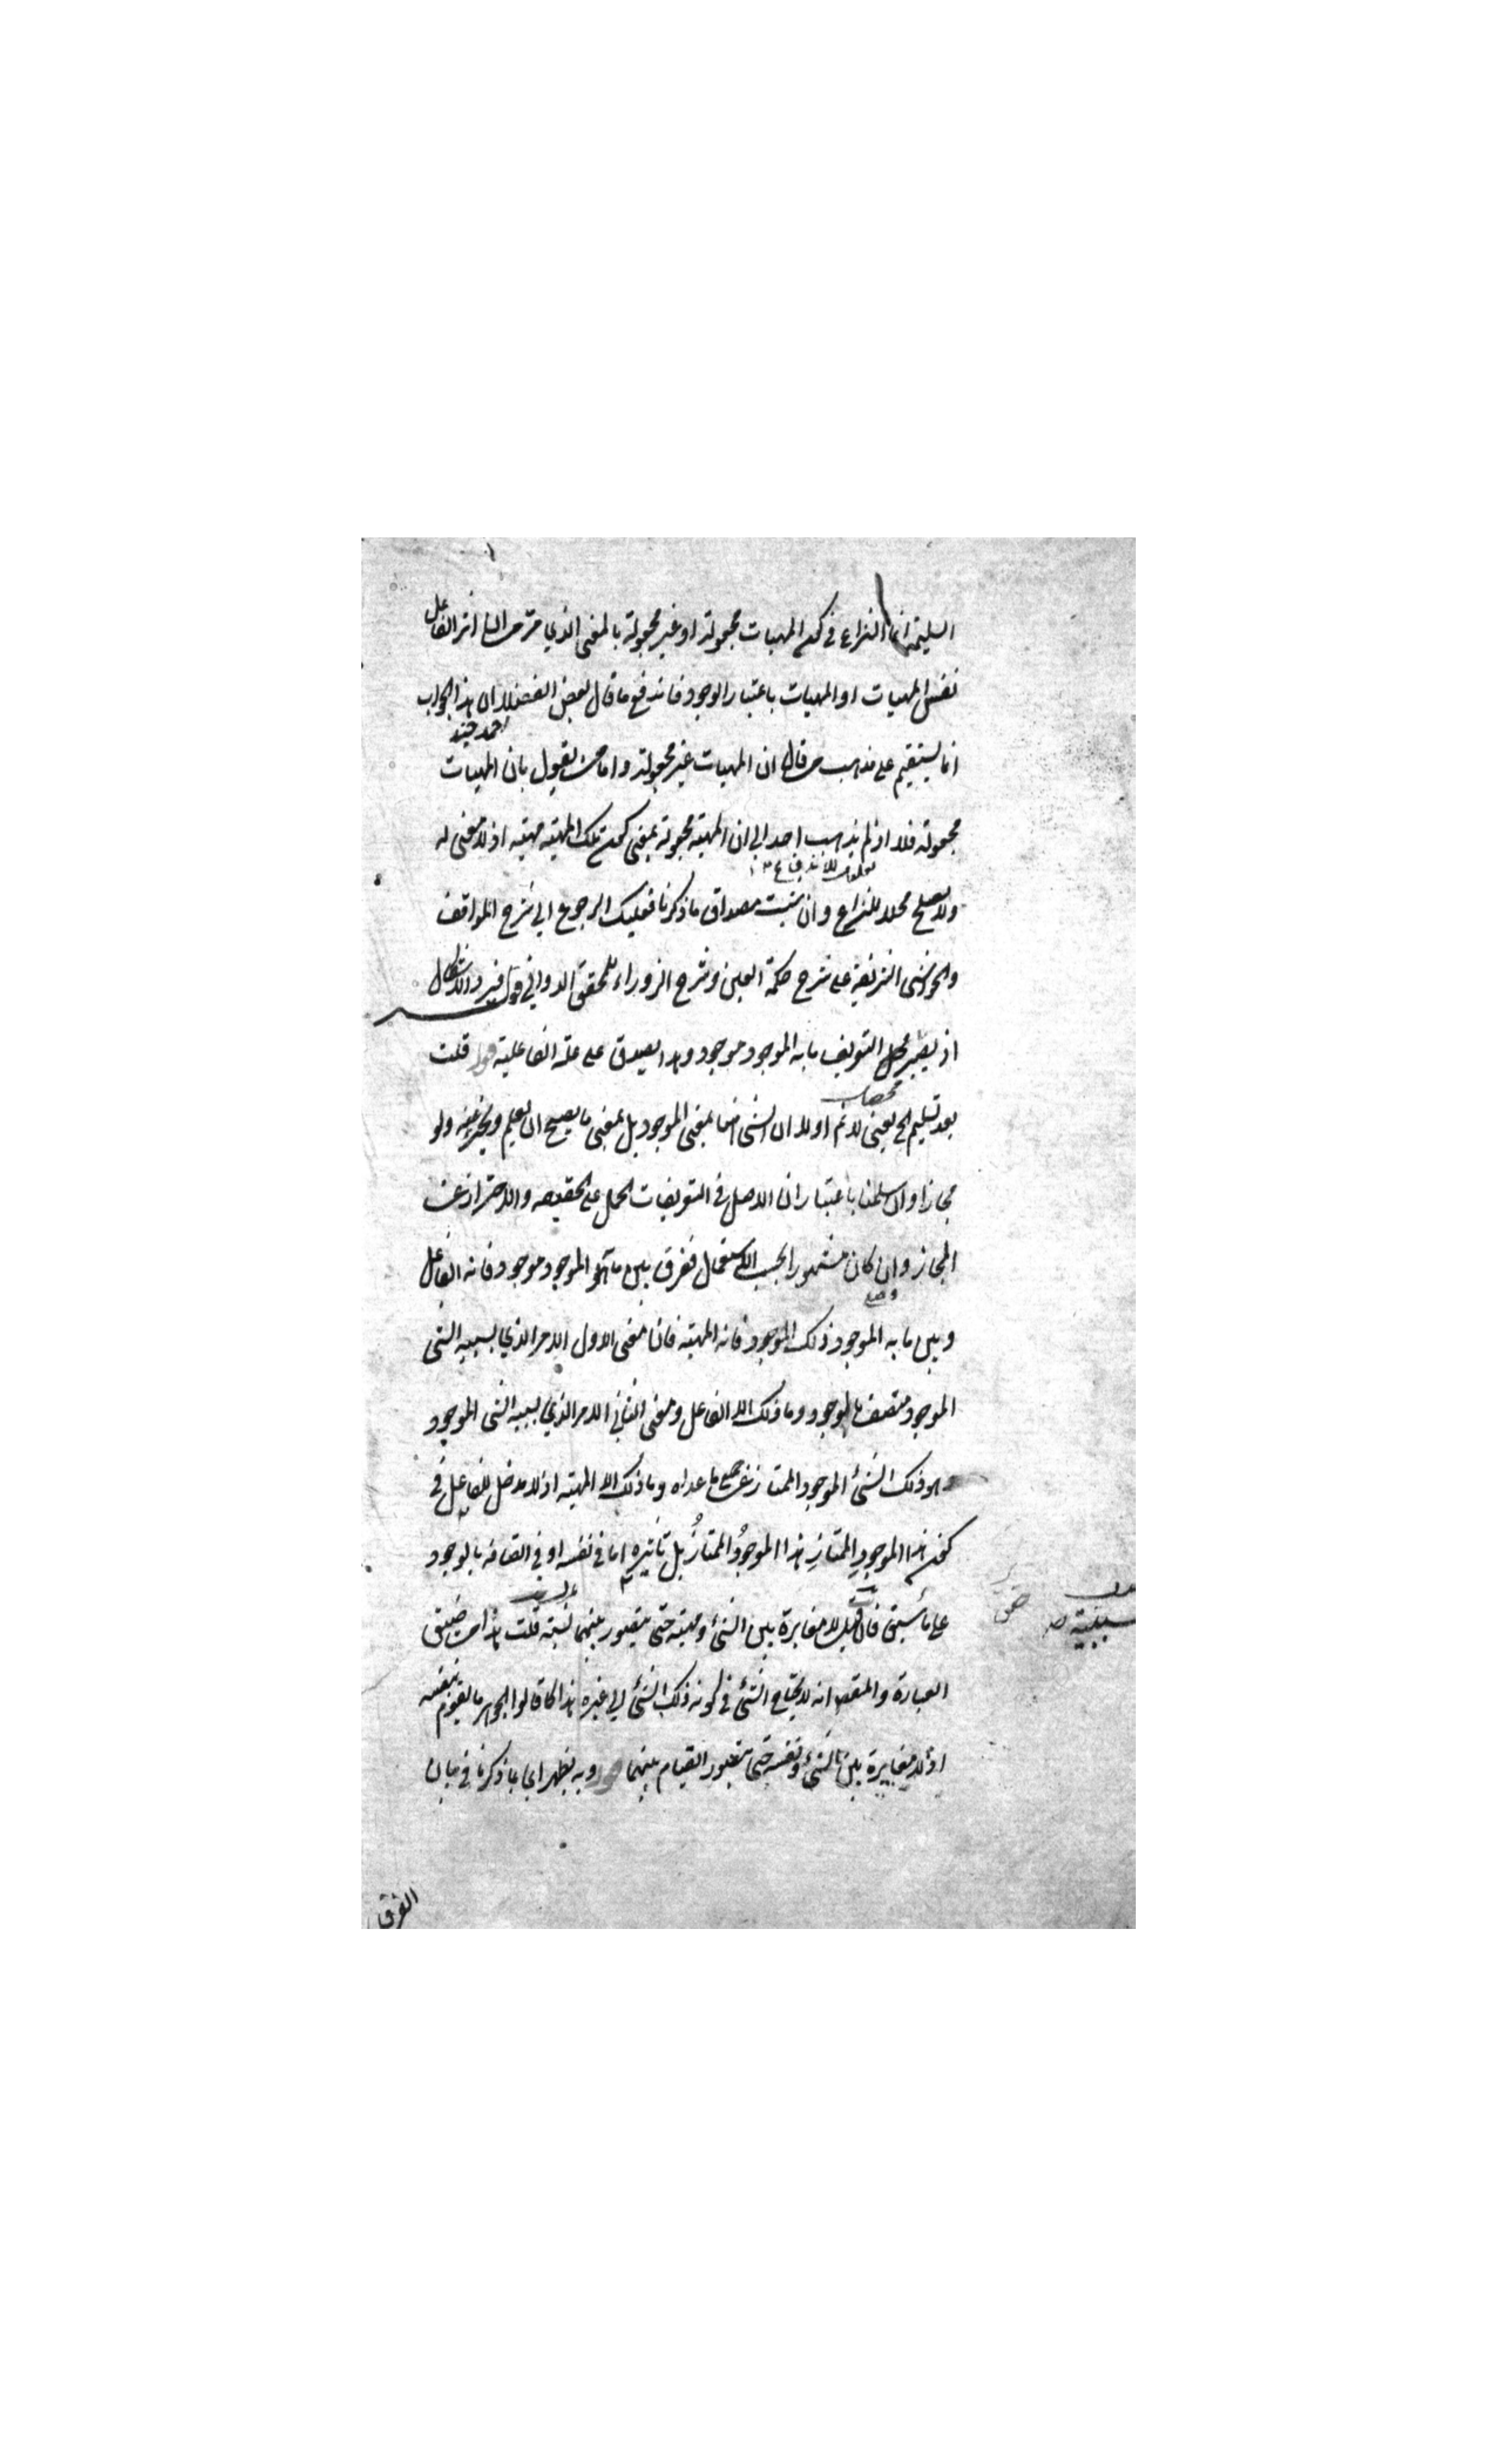 السليمة انما النزاع في كون المهيات مجعولة او غير مجعولة بالمعنى الذي مر من ان اثر الفاعل
نفس المهيات او المهيات باعتبار الوجود فاندفع ما قال بعض الفضلاء ان هذا الجواب
احمد جنيد
انما يستقيم على مذهب من قال ان المهيات غير مجعولة واما من يقول بان المهيات
مجعولة فلا اذ لم يذهب احد الى ان المهية مجعولة بمعنى كون تلك المهية مهية اذ لا معنى له
للاندفاع
ولا يصلح محلا للنزاع وان شئت مصداق ما ذكرنا فعليك الرجوع الى شرح المواقف
والحواشي الشريفية على شرح حكمة العين وشرح الزوراء للمحقق الدواني قوله فيرد الاشكال
اذ يصير محصل التعريف ما به الموجود موجود وهذا يصدق على علة الفاعلية قوله قلت
محصله
بعد تسليم الخ يعني لا نم اولا ان الشئ ههنا بمعنى الموجود بل بمعنى ما يصح ان يعلم ويخبر عنه ولو
مجازا وان سلمنا باعتبار ان الاصل في التعريفات الحمل على الحقيقة والاحتراز عن
المجاز وان كان مشهورا بحسب الاستعمال ففرق بين ما به الموجود موجود فانه الفاعل
وبين ما به الموجود ذلك الموجود فانه المهية فان معنى الاول الامر الذي بسببه الشئ
الموجود متصف بالوجود وما ذلك الا الفاعل ومعنى الثاني الامر الذي بسببه الشئ الموجود
هو ذلك الشئ الموجود الممتاز عن جميع ما عداه وما ذلك الا المهية اذ لا مدخل للفاعل في
كون هذا الموجودِ الممتازِ هذا الموجودُ الممتازُ بل تأثيره اما في نفسه او في اتصافه بالوجود
على ما سبق فان قيل لا مغايرة بين الشئ ومهيته حتى يتصور بينهما نسبة قلت هذا من ضيق
سببية
العبارة والمقصود انه لا يحتاج الشئ في كونه ذلك الشئ الى غيره هذا كما قالوا الجوهر ما يقوم بنفسه
اذ لا مغايرة بين الشئ ونفسه حتى يتصور القيام بينهما قوله وبه يظهر اي بما ذكرنا في بيان
الفرق